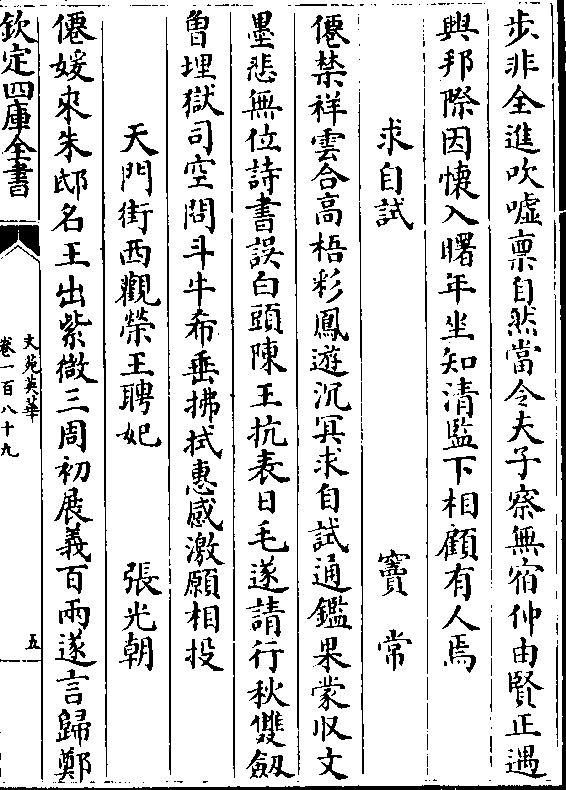 步非全進吹嘘禀自然當令夫子察無宿仲由賢正遇
興邦際因懐入曙年坐知清監下相顧有人焉
求自試 竇常
僊禁祥雲合高梧彩鳳遊沉冥求自試通鑑果蒙収文
墨悲無位詩書誤白頭陳王抗表日毛遂請行秋雙劔
曾埋獄司空問斗牛希垂拂拭惠感激願相投
天門街西觀榮王聘妃 張光朝
僊媛來朱邸名王出紫微三周初展義百兩遂言歸鄭
欽定四庫全書
文苑英華
卷一百八十九
五